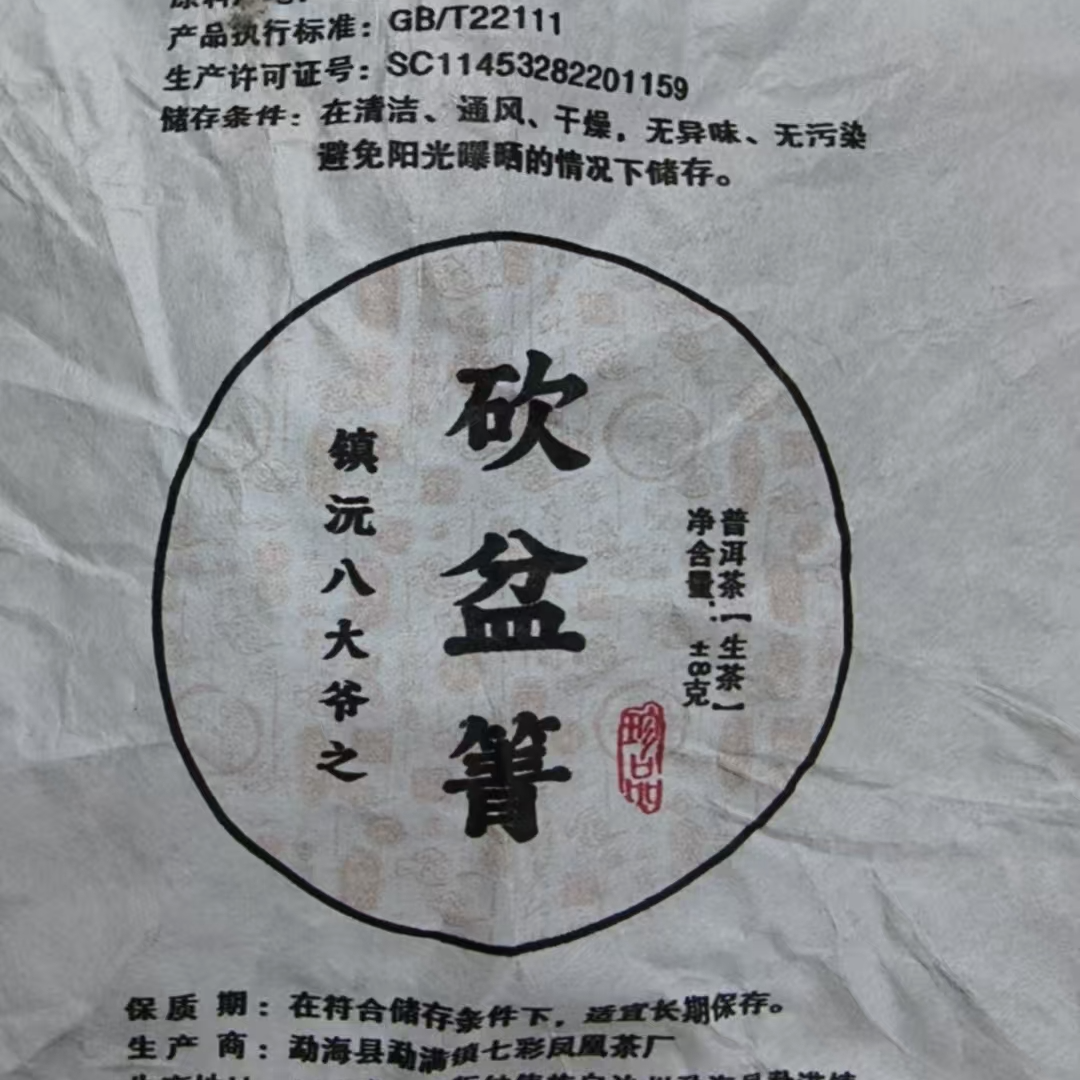 产品执行标准：GB/T22111
生产许可证号：SC11453282201159
储存条件：在清洁、通风、干燥，无异味、无污染
避免阳光曝晒的情况下储存。
普洱茶【生茶】
净含量： ±8克
砍盆箐
镇沅八大爷之
珍品
保质期：在符合储存条件下，适宜长期保存。
生产商：勐海县勐满镇七彩凤凰茶厂